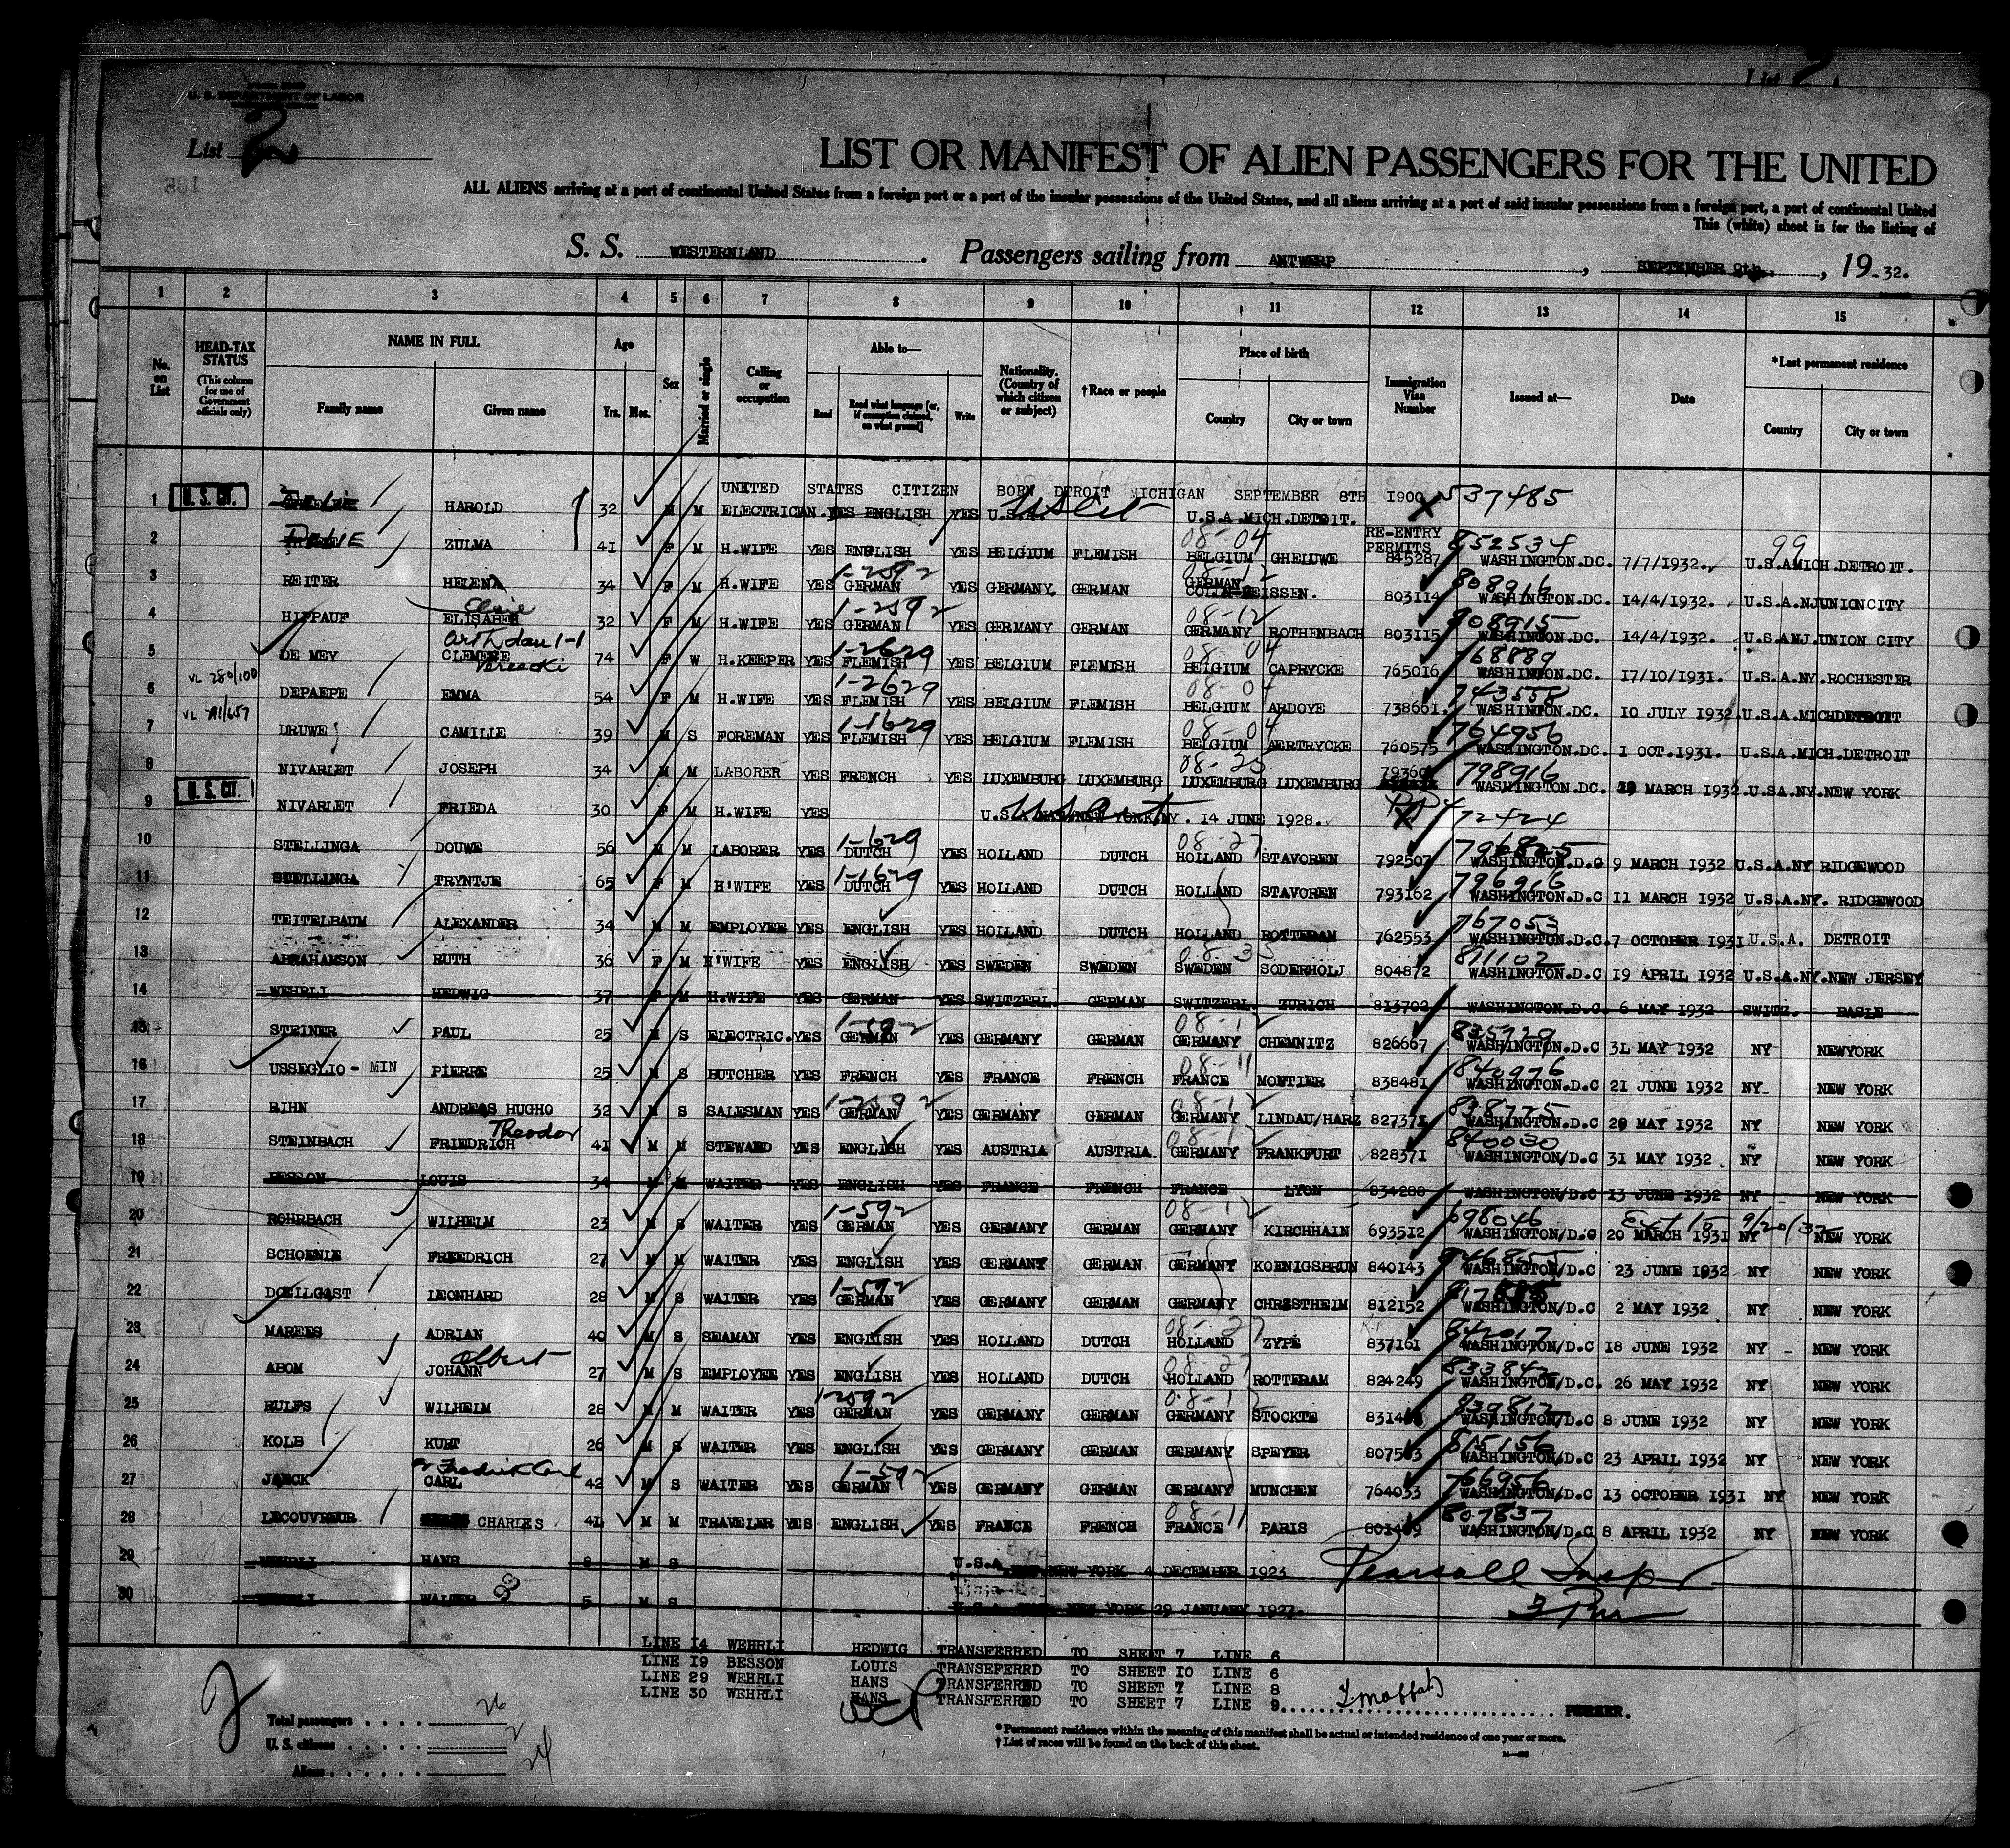 List 2
U. S. DEPARTMENT OF LABOR
List 2
LIST OR MANIFEST OF ALIEN PASSENGERS FOR THE UNITED
ALL ALIENS arriving at a port of continental United States from a foreign port or a port of the insular possessions of the United States, and all aliens arriving at a port of said insular possessions from a foreign port, a port of continental United
This (white) sheet is for the listing of
S. S. WESTERNLAND. Passengers sailing from ANTWERP, SEPTEMBER 9th., 19 32.
1 2 3 4 5 6 7 8 9 10 11 12 13 14 15
No. on List
HEAD-TAX STATUS (This column for use of Government officials only)
NAME IN FULL Family name Given name
Age Yrs. Mos.
Sex
Married or single
Calling or occupation
Able to— Read Read what language [or, if exemption claimed, on what ground] Write
Nationality. (Country of which citizen or subject)
†Race or people
Place of birth Country City or town
Immigration Visa Number
Issued at—
Date
*Last permanent residence Country City or town
UNITED STATES CITIZEN BORN DTROIT MICHIGAN SEPTEMBER 8TH 1900 537485
1 U. S. CIT. HAROLD 32 M M ELECTRICIAN. YES ENGLISH YES U.S.A. U.S.A. MICH. DETROIT.
RE-ENTRY PERMITS
08-04 852534 99
2 ZULMA 41 F M H.WIFE YES ENGLISH YES BELGIUM FLEMISH BELGIUM GHELUWE 845287 WASHINGTON.DC. 7/7/1932. U.S.A MICH.DETROIT.
1-2592 08-12 808916
3 REITER HELENA 34 F M H.WIFE YES GERMAN YES GERMANY. GERMAN GERMAN 803114 WASHINGTON.DC. 14/4/1932. U.S.A.NJ UNION CITY
1-2592 08-12 808915
4 HIPPAUF ELISABEH 32 F M H.WIFE YES GERMAN YES GERMANY GERMAN GERMANY ROTHENBACH 803115 WASHINTON.DC. 14/4/1932. U.S.A NJ.UNION CITY
1-2629 08-04 768889
5 DE MEY CLEMENE 74 F W H.KEEPER YES FLEMISH YES BELGIUM FLEMISH BELGIUM CAPRYCKE 765016 WASHINGTON.DC. 17/10/1931. U.S.A.NY.ROCHESTER
VL 280/100 1-2629 08-04 743558
6 DEPAEPE EMMA 54 F M H.WIFE YES FLEMISH YES BELGIUM FLEMISH BELGIUM ARDOYE 738661. WASHINGTON.DC. 10 JULY 1932. U.S.A.MICH DETROIT
1-1629 08-04 764956
7 DRUWE CAMILLE 39 M S FOREMAN YES FLEMISH YES BELGIUM FLEMISH BELGIUM AERTRYCKE 760575 WASHINGTON.DC. 1 OCT.1931. U.S.A.MICH.DETROIT
08-25 798916
8 NIVARLET JOSEPH 34 M M LABORER YES FRENCH YES LUXEMBURG LUXEMBURG LUXEMBURG LUXEMBURG WASHINGTON.DC. MARCH 1932. U.S.A.NY.NEW YORK
9 U. S. CIT. NIVARLET FRIEDA 30 F M H.WIFE YES NY. 14 JUNE 1928. 472424
1-1629 08-27 796825
10 STELLINGA DOUWE 56 M M LABORER YES DUTCH YES HOLLAND DUTCH HOLLAND STAVOREN 792507 WASHINGTON.D.C 9 MARCH 1932 U.S.A.NY RIDGEWOOD
1-1629 796916
11 STELLINGA TRYNTJE 65 F M H'WIFE YES DUTCH YES HOLLAND DUTCH HOLLAND STAVOREN 793162 WASHINGTON.D.C 11 MARCH 1932 U.S.A.NY. RIDGEWOOD
767053
12 TEITELBAUM ALEXANDER 34 M M EMPLOYEE YES ENGLISH YES HOLLAND DUTCH HOLLAND ROTTERDAM 762553 WASHINGTON.D.C. 7 OCTOBER 1931 U.S.A. DETROIT
08-35 811102
13 ABRAHAMSON RUTH 36 F M H'WIFE YES ENGLISH YES SWEDEN SWEDEN SWEDEN SODERHOLJ 804872 WASHINGTON.D.C 19 APRIL 1932 U.S.A.NY.NEW JERSEY
14 WEHRLI HEDWIG 37 F M H.WIFE YES GERMAN YES SWITZERL. GERMAN SWITZERL. ZURICH 813702 WASHINGTON.D.C 6 MAY 1932 SWITZ. BASLE
1-592 08-12 835929
15 STEINER PAUL 25 M S ELECTRIC. YES GERMAN YES GERMANY GERMAN GERMANY CHEMNITZ 826667 WASHINGTON.D.C 31 MAY 1932 NY NEWYORK
08-11 840976
16 USSEGLIO-MIN PIERRE 25 M S BUTCHER YES FRENCH YES FRANCE FRENCH FRANCE MONTIER 838481 WASHINGTON.D.C 21 JUNE 1932 NY NEW YORK
1-2592 08-12 838775
17 RIHN ANDREAS HUGHO 32 M S SALESMAN YES GERMAN YES GERMANY GERMAN GERMANY LINDAU/HARZ 827371 WASHINGTON.D.C 20 MAY 1932 NY NEW YORK
Theodor 08-12 840030
18 STEINBACH FRIEDRICH 41 M M STEWARD YES ENGLISH YES AUSTRIA AUSTRIA GERMANY FRANKFURT 828371 WASHINGTON/D.C 31 MAY 1932 NY NEW YORK
19 BESSON LOUIS 34 M M WAITER YES ENGLISH YES FRANCE FRENCH FRANCE LYON 834288 WASHINGTON/D.C 13 JUNE 1932 NY NEW YORK
1-592 08-12 698046 Ext to 9/20/32
20 ROHRBACH WILHELM 23 M S WAITER YES GERMAN YES GERMANY GERMAN GERMANY KIRCHHAIN 693512 WASHINGTON/D.C 20 MARCH 1931 NY NEW YORK
846855
21 SCHOENLE FRIEDRICH 27 M M WAITER YES ENGLISH YES GERMANY GERMAN GERMANY KOENIGSBRUN 840143 WASHINGTON/D.C 23 JUNE 1932 NY NEW YORK
1-592
22 DOEILGAST LEONHARD 28 M S WAITER YES GERMAN YES GERMANY GERMAN GERMANY CHRESTHEIM 812152 WASHINGTON/D.C 2 MAY 1932 NY NEW YORK
08-27 842017
23 MAREES ADRIAN 40 M S SEAMAN YES ENGLISH YES HOLLAND DUTCH HOLLAND ZYPE 837161 WASHINGTON/D.C 18 JUNE 1932 NY NEW YORK
Albert 08-27 833842
24 ABOM JOHANN 27 M S EMPLOYEE YES ENGLISH YES HOLLAND DUTCH HOLLAND ROTTERDAM 824249 WASHINGTON/D.C. 26 MAY 1932 NY NEW YORK
1-2592 08-12 839812
25 RULFS WILHELM 28 M M WAITER YES GERMAN YES GERMANY GERMAN GERMANY STOCKTE WASHINGTON/D.C 8 JUNE 1932 NY NEW YORK
815156
26 KOLB KURT 26 M S WAITER YES ENGLISH YES GERMANY GERMAN GERMANY SPEYER WASHINGTON/D.C 23 APRIL 1932 NY NEW YORK
1-592 766956
27 JARCK CARL 42 M S WAITER YES GERMAN YES GERMANY GERMAN GERMANY MUNCHEN 764033 WASHINGTON/D.C 13 OCTOBER 1931 NY NEW YORK
08-11 807837
28 LECOUVREUR CHARLES 41 M M TRAVELER YES ENGLISH YES FRANCE FRENCH FRANCE PARIS WASHINGTON/D.C 8 APRIL 1932 NY NEW YORK
29 WEHRLI HANS 8 M S U.S.A. NEW YORK 4 DECEMBER 1923
30 WEHRLI WALTER 5 M S U.S.A. NEW YORK 29 JANUARY 1927.
Pearsall Insp
LINE 14 WEHRLI HEDWIG TRANSFERRED TO SHEET 7 LINE 6
LINE 19 BESSON LOUIS TRANSEFERRD TO SHEET 10 LINE 6
LINE 29 WEHRLI HANS TRANSFERRED TO SHEET 7 LINE 8
LINE 30 WEHRLI HANS TRANSFERRED TO SHEET 7 LINE 9 PURSER.
Total passengers 26
U. S. citizens 2
Aliens 24
* Permanent residence within the meaning of this manifest shall be actual or intended residence of one year or more.
† List of races will be found on the back of this sheet.